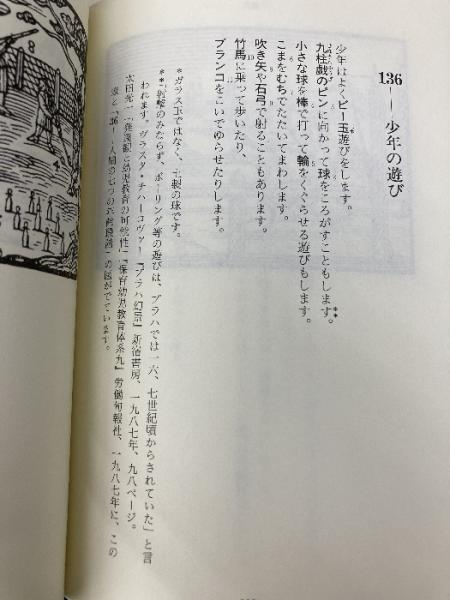 136——少年の遊び
少年はよくビー玉遊びをします。
九柱戯のピンに向かって球をころがすこともします。**
小さな球を棒で打って輪をくぐらせる遊びもします。
こまをむちでたたいてまわします。
吹き矢や石弓で射ることもあります。
竹馬に乗って歩いたり、
ブランコをこいでゆらせたりします。
*ガラス玉ではなく、土製の球です。
**「射撃のみならず、ボーリング等の遊びは、プラハでは一六、七世紀頃からされていた」と言
われます。ヴラスタ・チハーコヴァー『プラハ幻景』新宿書房、一九八七年、九八ページ。
太田光一「発達観と幼児教育の可能性」『保育幼児教育体系九』労働旬報社、一九八七年に、この
章と「36——人間の七つの年齢段階」の図がでています。